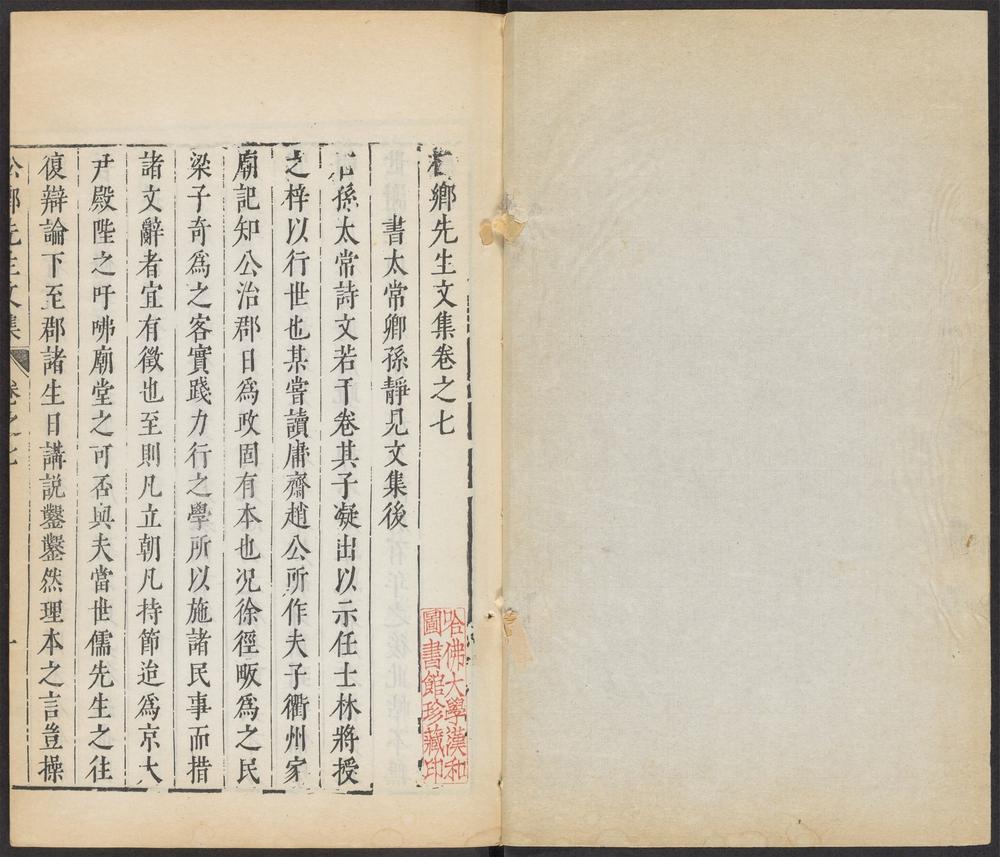 鄉先生文集卷之七
書太常卿孫靜見文集後
右孫太常詩文若干卷其子凝出以示任士林將授
之梓以行世也某嘗讀庸齋趙公所作夫子衢州家
廟記知公治郡日為政固有本也况徐徑畈為之民
梁子奇為之客實踐力行之學所以施諸民事而措
諸文辭者宜有徵也至則凡立朝凡持節迨為京大
尹殿陛之吁咈廟堂之可否與夫當世儒先生之往
復辯論下至郡諸生日講說鑿鑿然理本之言豈操
鄉先生文集 卷之七 一
哈佛大學漢和
圖書館珍藏印